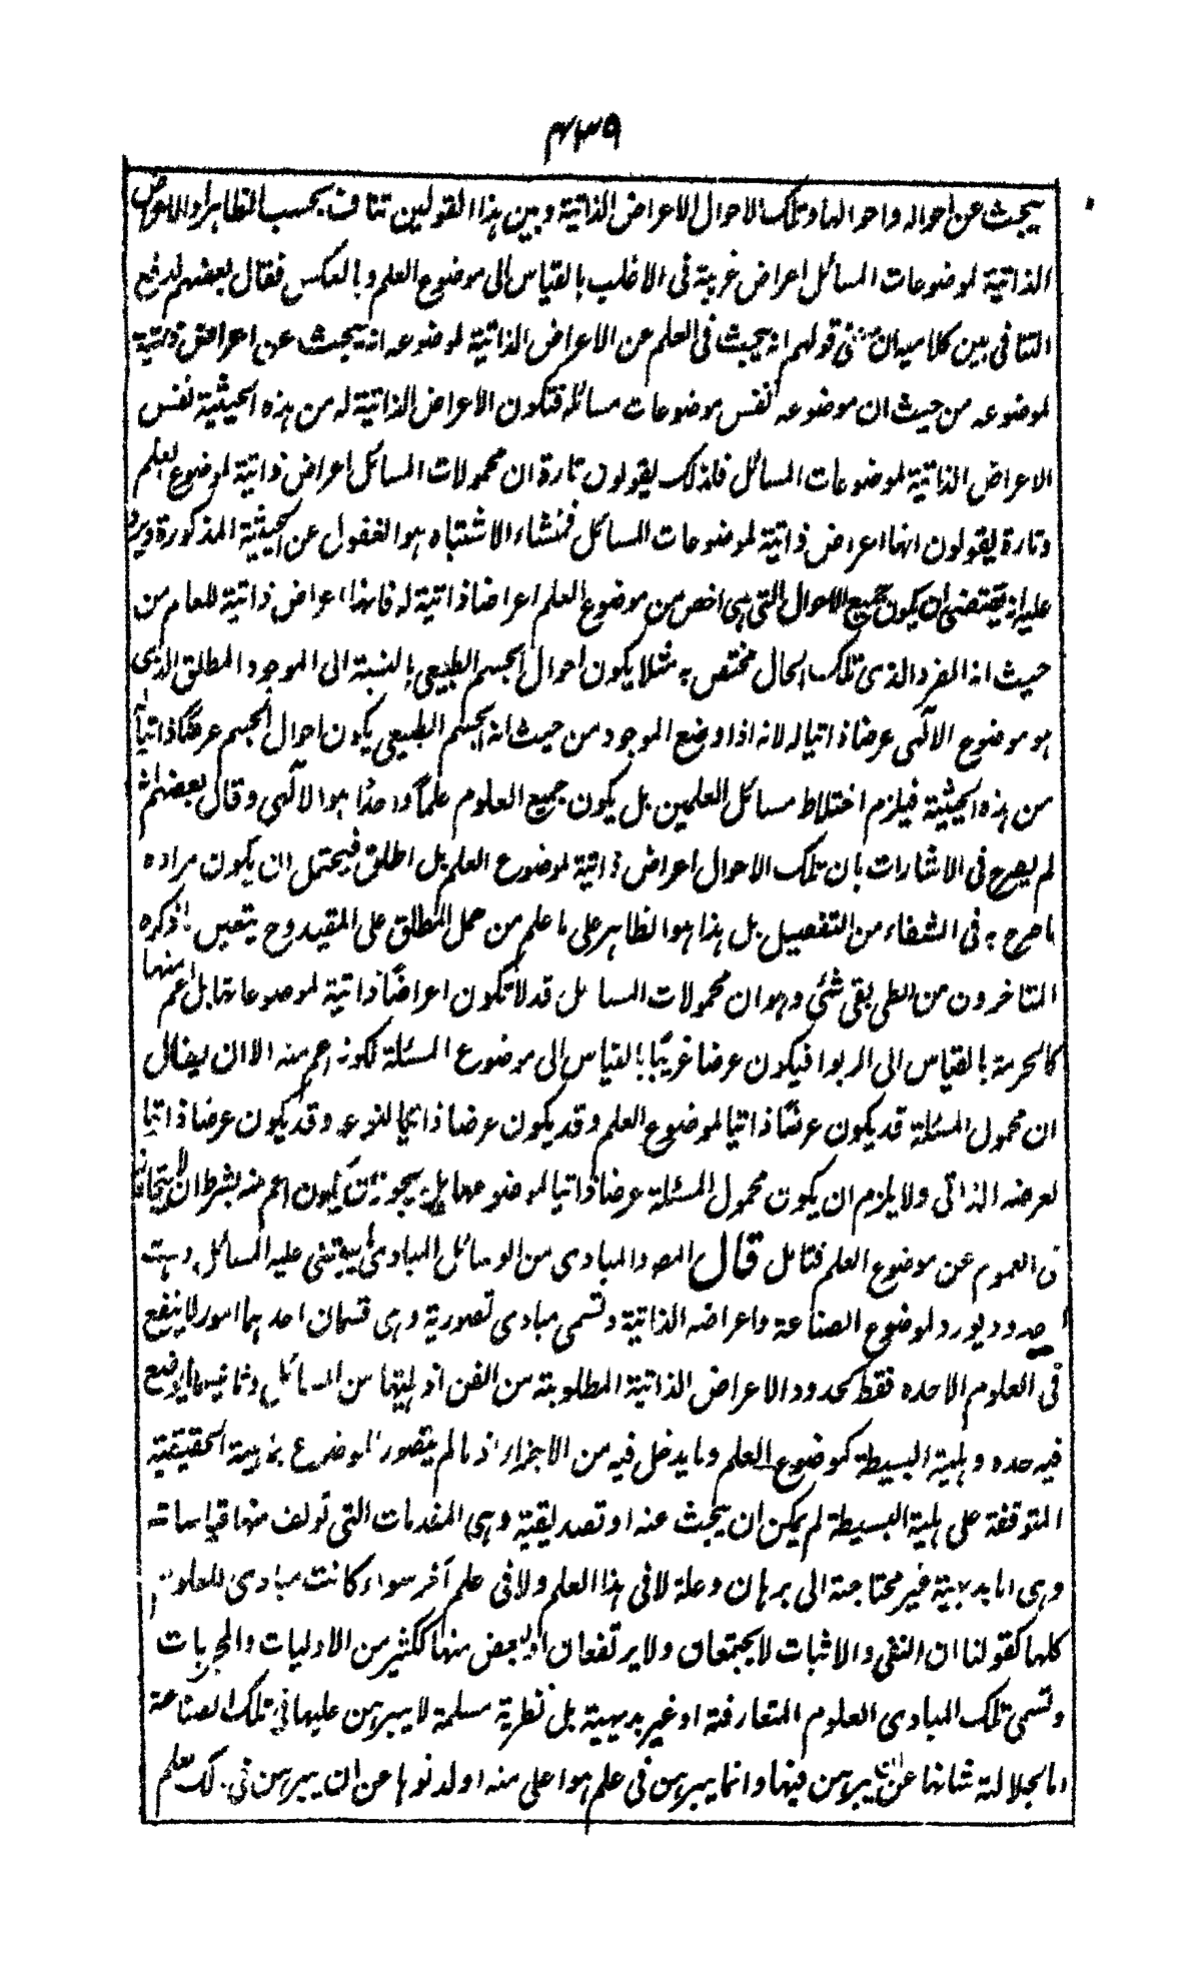 ۴۳۹
يبحث عن احواله واحوالها وتلك الاحوال الاعراض الذاتية وبين هذا القولين تناف بحسب الظاهر اذ الاعراض
الذاتية لموضوعات المسائل اعراض غريبة فى الاغلب بالقياس الى موضوع العلم وبالعكس فقال بعضهم لدفع
التنافى بين كلاميه ان معنى قولهم انه يبحث فى العلم عن الاعراض الذاتية لموضوعه انه يبحث عن اعراض ذاتية
لموضوعه من حيث ان موضوعه نفس موضوعات مسائله فتكون الاعراض الذاتية له من هذه الحيثية نفس
الاعراض الذاتية لموضوعات المسائل فلذلك يقولون تارة ان محمولات المسائل اعراض ذاتية لموضوع العلم
وتارة يقولون انها اعراض ذاتية لموضوعات المسائل فمنشاء الاشتباه هو الغفول عن الحيثية المذكورة ويرد
عليه انه يقتضى ان يكون جميع الاحوال التى هى اخص من موضوع العلم اعراضا ذاتية له فانها اعراض ذاتية للعام من
حيث انه الفرد الذى تلك الحال مختص به مثلا يكون احوال الجسم الطبيعى بالنسبة الى الموجود المطلق الذى
هو موضوع الالهى عرضا ذاتيا له لانه اذا وضع الموجود من حيث انه الجسم الطبيعى يكون احوال الجسم عرضا ذاتيا
من هذه الحيثية فيلزم اختلاط مسائل العلمين بل يكون جميع العلوم علمًا واحدًا هو الالهى وقال بعضهم
لم يصرح فى الاشارات بان تلك الاحوال اعراض ذاتية لموضوع العلم بل اطلق فيحتمل ان يكون مراده
ما صرح به فى الشفاء من التفصيل بل هذا هو الظاهر على ما علم من حمل المطلق على المقيد وح يتعين ما ذكره
المتاخرون من الطى بقى شئ وهو ان محمولات المسائل قد لا تكون اعراضًا ذاتية لموضوعاتها بل اعم منها
كالحرمة بالقياس الى الربوا فيكون عرضا غريبًا بالقياس الى موضوع المسئلة لكونه اعم منه الا ان يقال
ان محمول المسئلة قد يكون عرضًا ذاتيا لموضوع العلم وقد يكون عرضا ذاتيا لنوعه وقد يكون عرضا ذاتيا
لعرضه الذاتى ولا يلزم ان يكون محمول المسئلة عرضا ذاتيا لموضوعها بل يجوز ان يكون اعم منه بشرط ان لا يتجاوز
فى العموم عن موضوع العلم فتامل قال المص والمبادى من الوسائل المبادى ما يبتنى عليه المسائل وهى
حدود يورد لموضوع الصناعة واعراضه الذاتية وتسمى مبادى تصورية وهى قسمان احدهما امور لا ينفع
فى العلوم الاحده فقط كحدود الاعراض الذاتية المطلوبة من الفن اذ هليتها من المسائل وثانيهما ما يوضع
فيه حده وهلية البسيطة كموضوع العلم وما يدخل فيه من الاجزاء اذ ما لم يتصور الموضوع بماهيته الحقيقية
المتوقفة على هلية البسيطة لم يمكن ان يبحث عنه او تصديقية وهى المقدمات التى تولف منها قياساته
وهى اما بديهية غير محتاجة الى برهان وعلة لا فى هذا العلم ولا فى علم آخر سواء كانت مبادى للعلوم
كلها كقولنا ان النفى والاثبات لا يجتمعان ولا يرتفعان او لبعض منها ككثير من الاوليات والمجربات
وتسمى تلك المبادى العلوم المتعارفة او غير بديهية بل نظرية مسلمة لا يبرهن عليها فى تلك الصناعة
اما لجلالة شانها عن ان يبرهن فيها وانما يبرهن فى علم هو اعلى منه او لدنوها عن ان يبرهن فى ذلك العلم